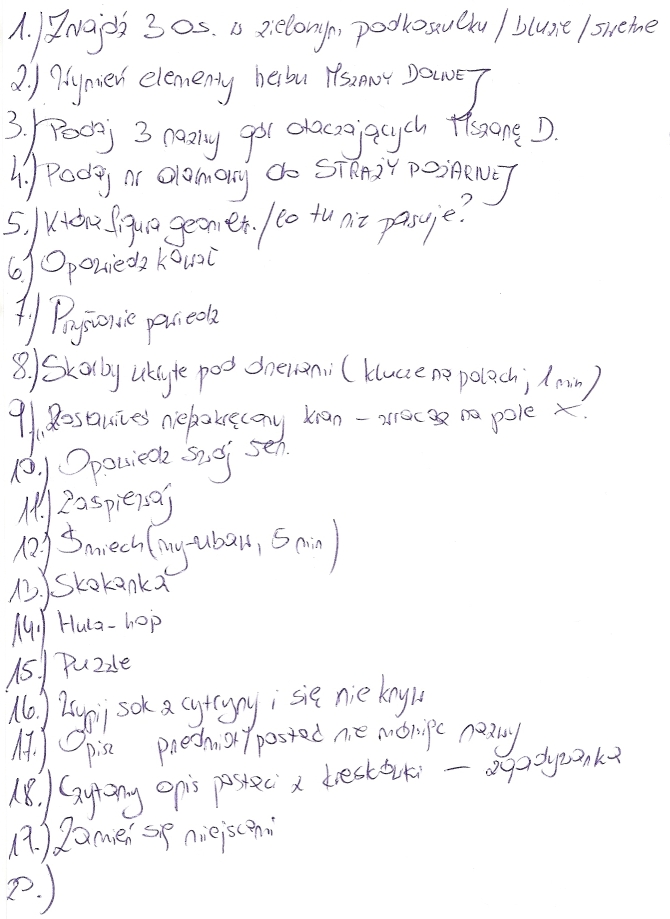 1.) Znajdź 3 os. w zielonym podkoszulku / bluzie / swetrze
2.) Wymień elementy herbu MSZANY DOLNEJ
3.) Podaj 3 nazwy gór otaczających Mszanę D.
4.) Podaj nr alarmowy do STRAŻY POŻARNEJ
5.) Która figura geometr. / co tu nie pasuje?
6.) Opowiedz kawał
7.) Przysłowie powiedz
8.) Skarby ukryte pod drzewami (klucze na polach; 1 min)
9.) „Zostawiłeś niezakręcony kran – wracasz na pole X.
10.) Opowiedz swój sen.
11.) Zaśpiewaj
12.) Śmiech (my-ubaw, 5 min)
13.) Skakanka
14.) Hula-hop
15.) Puzzle
16.) Wypij sok z cytryny i się nie krzyw
17.) Opisz przedmiot/postać nie mówiąc nazwy
18.) Czytamy opis postaci z kreskówki – zgadywanka
19.) Zamień się miejscami
20.)